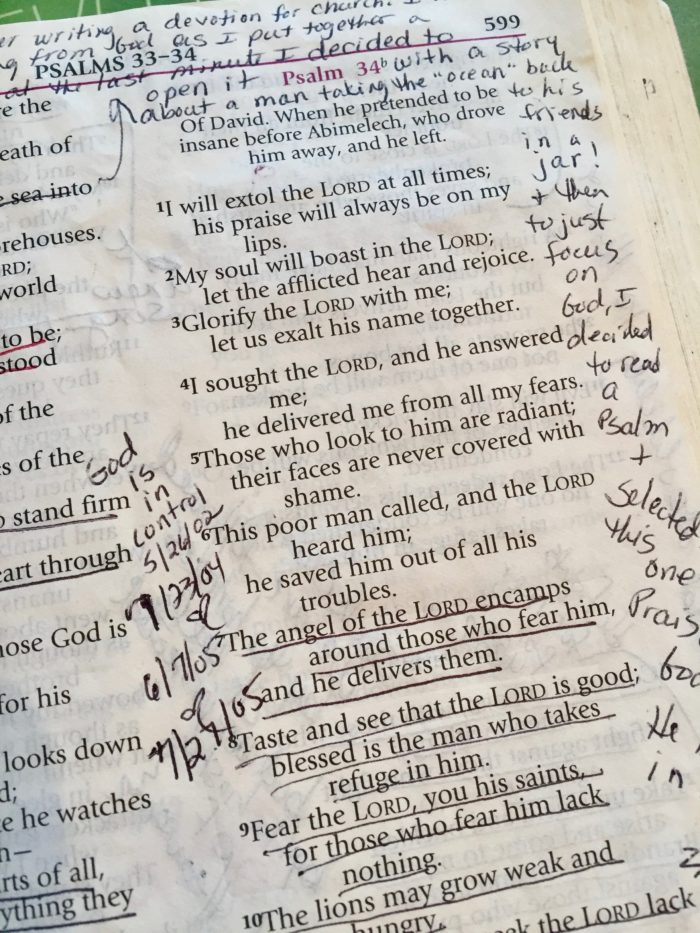 er writing a devotion for church. I
ng from God as I put together a
599
PSALMS 33–34
at the last minute I decided to
open it
Psalm 34b
with a story
about a man taking the "ocean" back
to his
friends
in a
jar!
+ then
to just
focus
on
God, I
decided
to read
a
Psalm
+
selected
this
one
Prais
God
He
in
re the
eath of
e sea into
rehouses.
RD;
world
to be;
stood
of the
s of the
o stand firm
eart through
hose God is
for his
looks down
d;
e he watches
n—
rts of all,
ything they
God
is
in
control
5/26/02
7/23/04
of
6/7/05
of
7/27/05
Of David. When he pretended to be
insane before Abimelech, who drove
him away, and he left.
1I will extol the LORD at all times;
his praise will always be on my
lips.
2My soul will boast in the LORD;
let the afflicted hear and rejoice.
3Glorify the LORD with me;
let us exalt his name together.
4I sought the LORD, and he answered
me;
he delivered me from all my fears.
5Those who look to him are radiant;
their faces are never covered with
shame.
6This poor man called, and the LORD
heard him;
he saved him out of all his
troubles.
7The angel of the LORD encamps
around those who fear him,
and he delivers them.
8Taste and see that the LORD is good;
blessed is the man who takes
refuge in him.
9Fear the LORD, you his saints,
for those who fear him lack
nothing.
10The lions may grow weak and
hungry,
ek the LORD lack